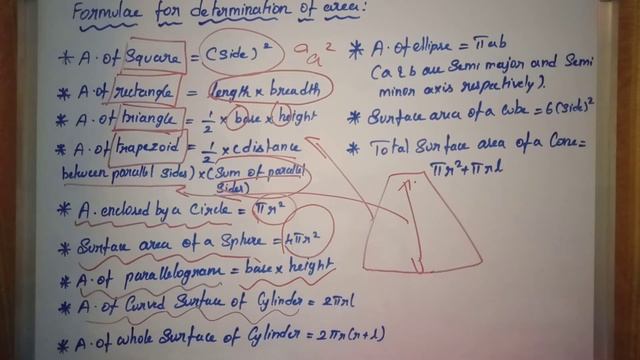 Formulae for determination of area:
* A. of Square = (Side)²
a a²
* A. of rectangle = length × breadth
* A. of triangle = 1/2 × base × height
* A. of trapezoid = 1/2 × (distance
between parallel sides) × (Sum of parallel
sides)
* A. enclosed by a Circle = πr²
* Surface area of a Sphere = 4πr²
* A. of parallelogram = base × height
* A. of Curved Surface of Cylinder = 2πrl
* A. of whole Surface of Cylinder = 2πr(r+l)
* A. of ellipse = πab
(a & b are Semi major and Semi
minor axis respectively).
* Surface area of a cube = 6(side)²
* Total Surface area of a Cone =
πr² + πrl